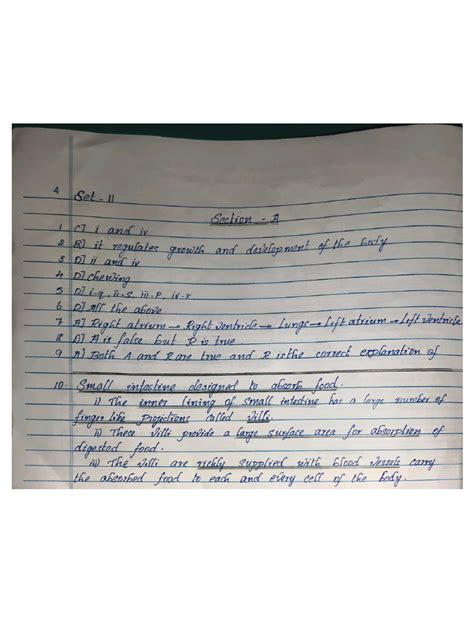 4
Set - II
Section - A
1 C] i and iv
2 B] it regulates growth and development of the body
3 D] ii and iv
4 D] chewing
5 D] i-q, ii-s, iii-p, iv-r
6 D] All the above
7 A] Right atrium → Right Ventricle → Lungs → Left atrium → Left Ventricle
8 D] A is false but R is true.
9 A] Both A and R are true and R is the correct explanation of
10. Small intestine designed to absorb food.
i) The inner lining of small intestine has a large number of
finger like projections called villi.
ii) These villi provide a large surface area for absorption of
digested food.
iii) The villi are richly supplied with blood vessels carry
the absorbed food to each and every cell of the body.